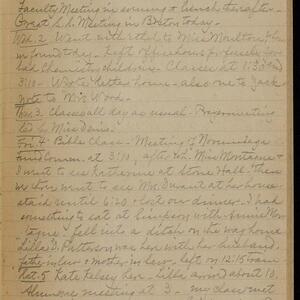 Faculty Meeting in evening & lunch thereafter -
Great Meeting in Boston today.
Wed. 2 Went with Ethel to Miss Moulton
found today. Left
had Chemistry Classes at 1:30 and
3:10 - Wrote letter home - also one to Jack
note to Mrs Wood.
Thur. 3. Classes all day as usual - Prayer meeting
led by Miss Davis.
Fri. 4. Bible Class - Meeting of
Comm. at 3:10, after wh. Miss Montague &
I went to see Katherine at Stone Hall. Then
we two went to see Mrs Durant at her house
staid until 6:20 & lost our dinner - I had
something to eat at Simpson with Annie Mon-
tague - fell into a ditch on the way home
Lillie D. Patterson was here with her husband,
father in law & mother in law - left on 12:15 a m
Sat. 5 Kate Kelsey here - Lillie arrived about 10.
Alumnae meeting at 3 - my class met